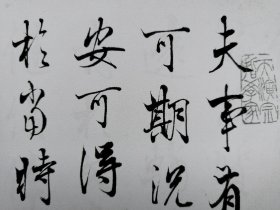 夫事有
可期况
安可得
於当時